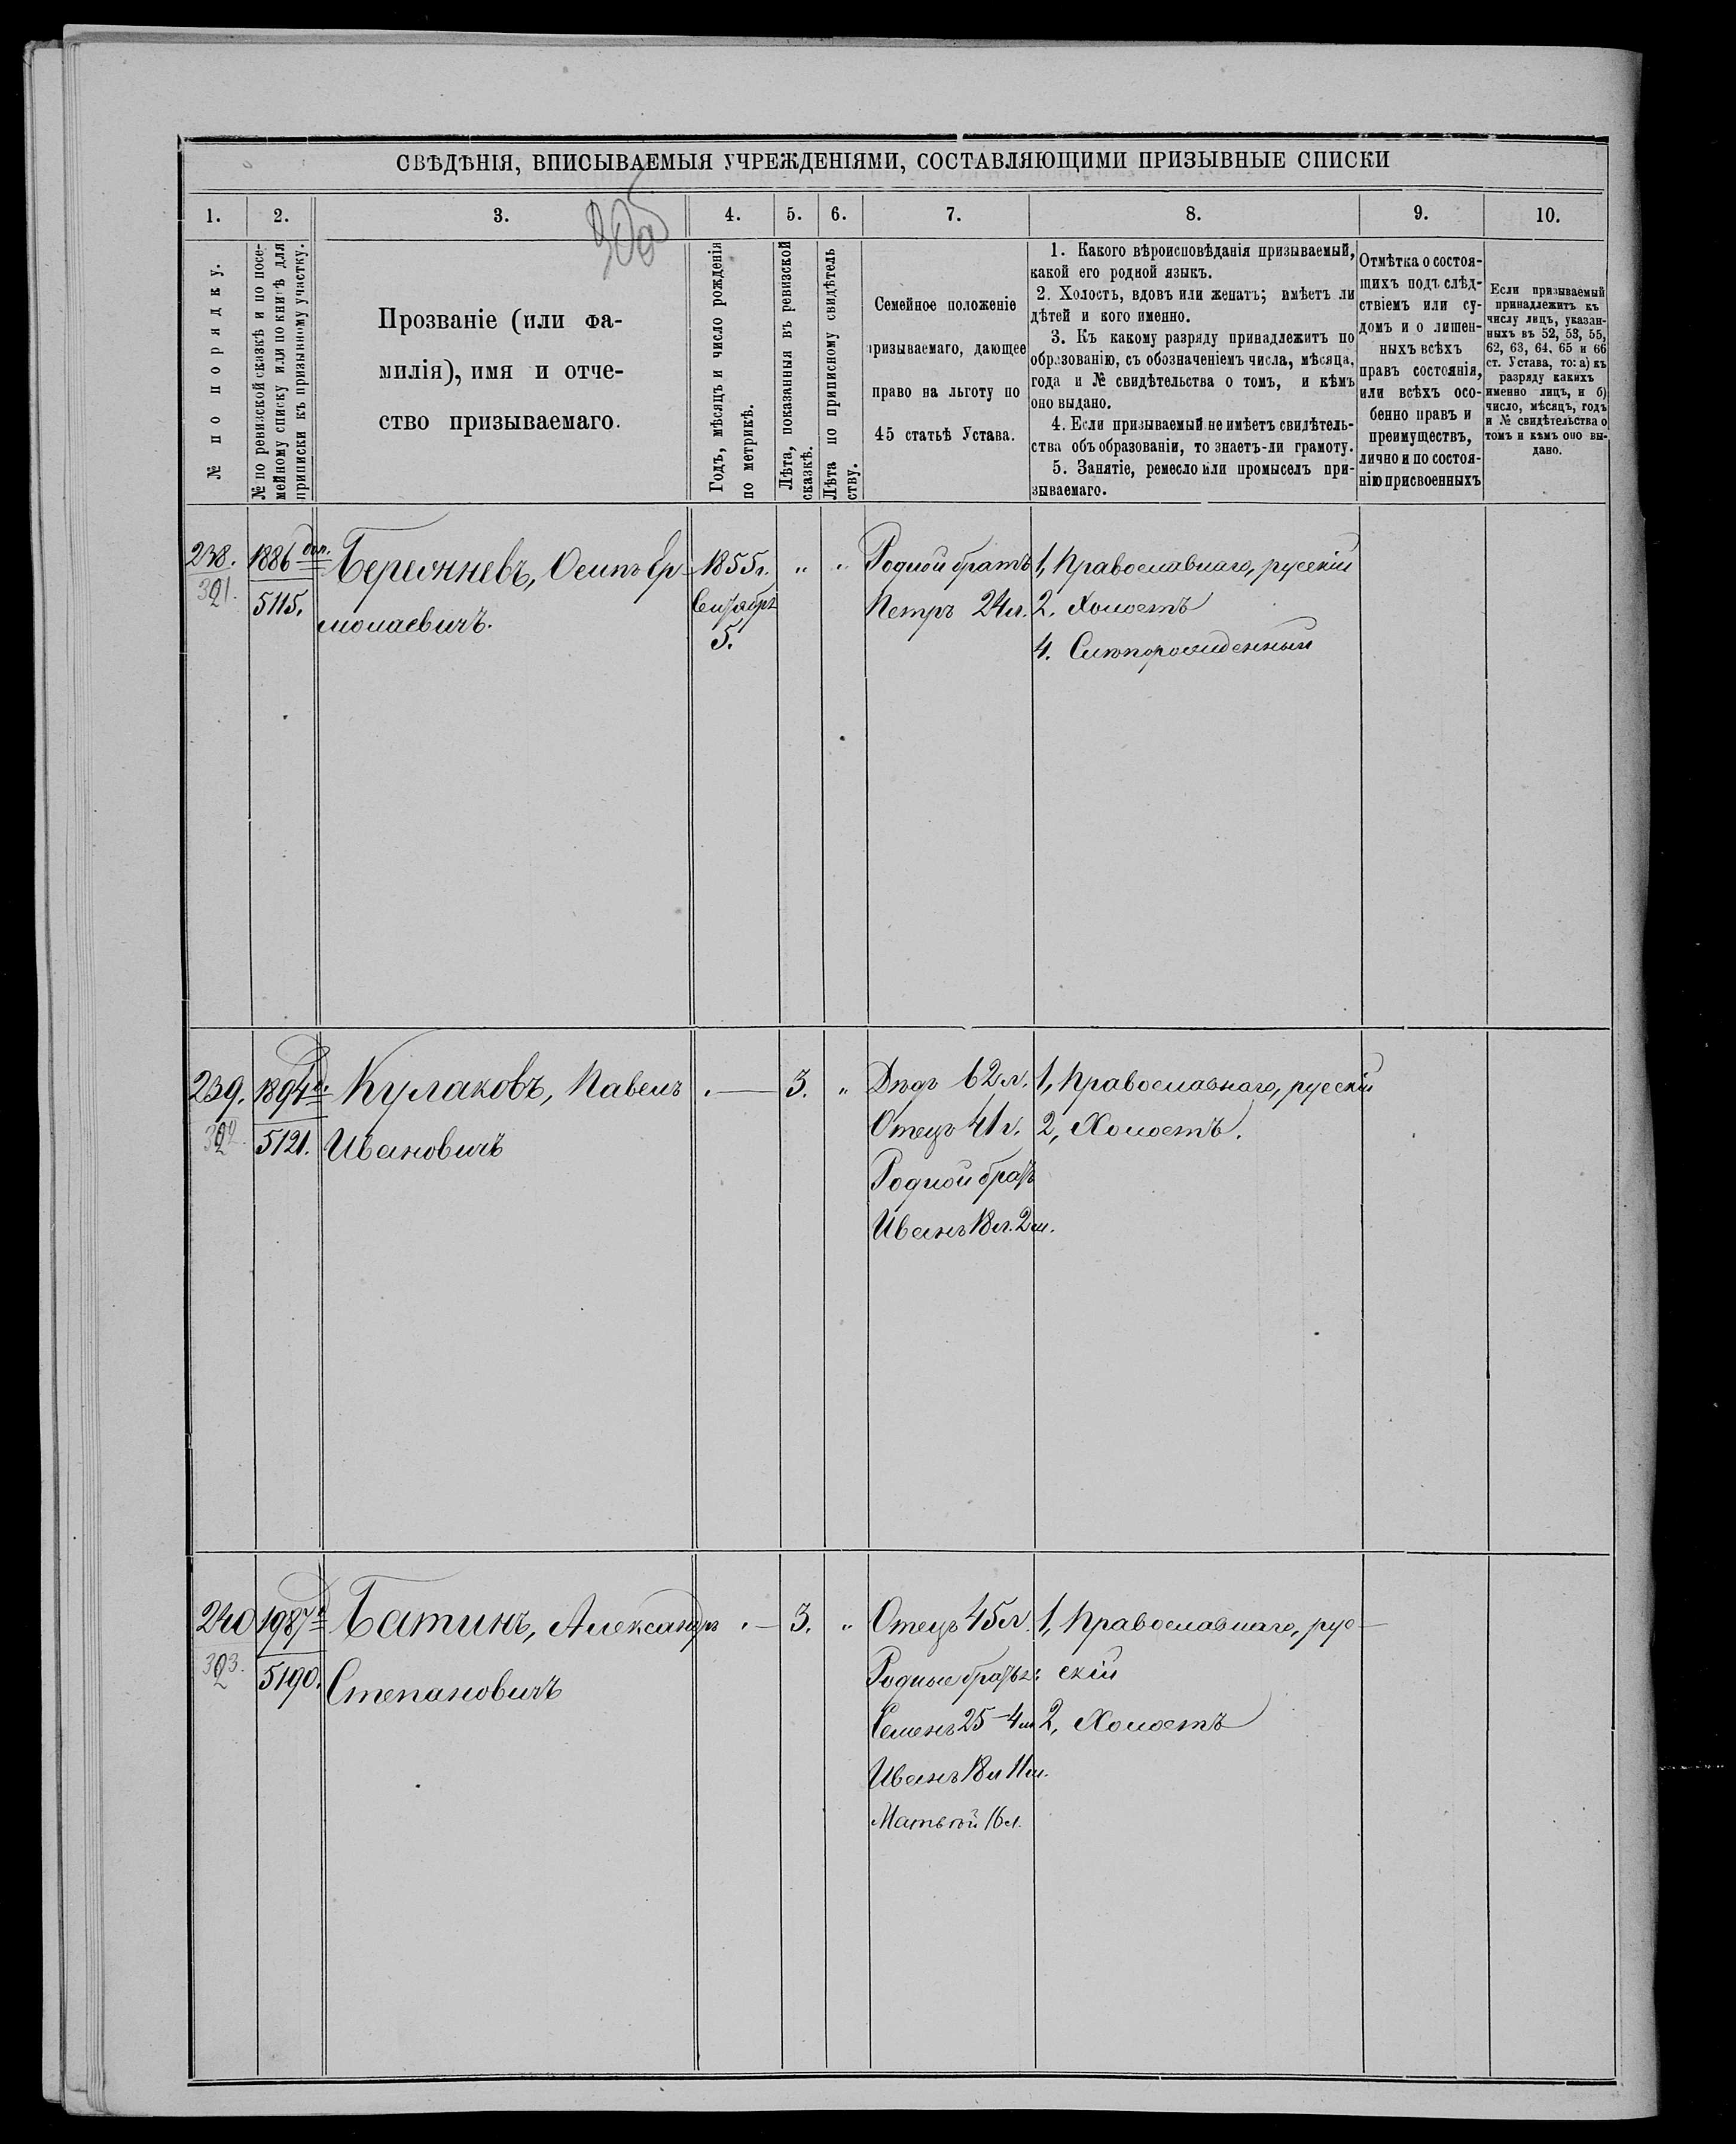 СВѢДѢНІЯ, ВПИСЫВАЕМЫЯ УЧРЕЖДЕНІЯМИ, СОСТАВЛЯЮЩИМИ ПРИЗЫВНЫЕ СПИСКИ
1. 2. 3. 4. 5. 6. 7. 8. 9. 10.
№ по порядку.
№ по ревизской сказкѣ и по посе-
мейному списку или по книгѣ для
приписки къ призывному участку.
Прозваніе (или фа-
милія), имя и отче-
ство призываемаго.
Годъ, мѣсяцъ и число рожденія
по метрикѣ.
Лѣта, показанныя въ ревизской
сказкѣ.
Лѣта по приписному свидѣтель
ству.
Семейное положеніе
призываемаго, дающее
право на льготу по
45 статьѣ Устава.
1. Какого вѣроисповѣданія призываемый,
какой его родной языкъ.
2. Холостъ, вдовъ или женатъ; имѣетъ ли
дѣтей и кого именно.
3. Къ какому разряду принадлежитъ по
образованію, съ обозначеніемъ числа, мѣсяца,
года и № свидѣтельства о томъ, и кѣмъ
оно выдано.
4. Если призываемый не имѣетъ свидѣтель-
ства объ образованіи, то знаетъ-ли грамоту.
5. Занятіе, ремесло или промыселъ при-
зываемаго.
Отмѣтка о состоя-
щихъ подъ слѣд-
ствіемъ или су-
домъ и о лишен-
ныхъ всѣхъ
правъ состоянія,
или всѣхъ осо-
бенно правъ и
преимуществъ,
лично и по состоя-
нію присвоенныхъ
Если призываемый
принадлежитъ къ
числу лицъ, указан-
ныхъ въ 52, 53, 55,
62, 63, 64, 65 и 66
ст. Устава, то: а) къ
разряду какихъ
именно лицъ, и б)
число, мѣсяцъ, годъ
и № свидѣтельства о
томъ и кѣмъ оно вы-
дано.
238. 1886 доп. Осипъ Ер- 1855 г. " " Родной братъ 1, Православнаго, русскій
321. 5115. молаевичъ. Сентября Петръ 24 л. 2. Холостъ
5. 4. Слѣпорожденный
239. 1894 д. Кулаковъ, Павелъ — 3. " Дѣдъ 62 л. 1, Православнаго, русскій
322. 5121. Ивановичъ Отецъ 41 г. 2, Холостъ.
Родной братъ
Иванъ 18 л. 2 м.
240 1987 д Батинъ, Александръ — 3. " Отецъ 45 л. 1, Православнаго, рус-
323. 5190. Степановичъ Родные братья: скій
Семенъ 25 - 4 м 2, Холостъ
Иванъ 18 л 11 м.
Матвѣй 16 л.